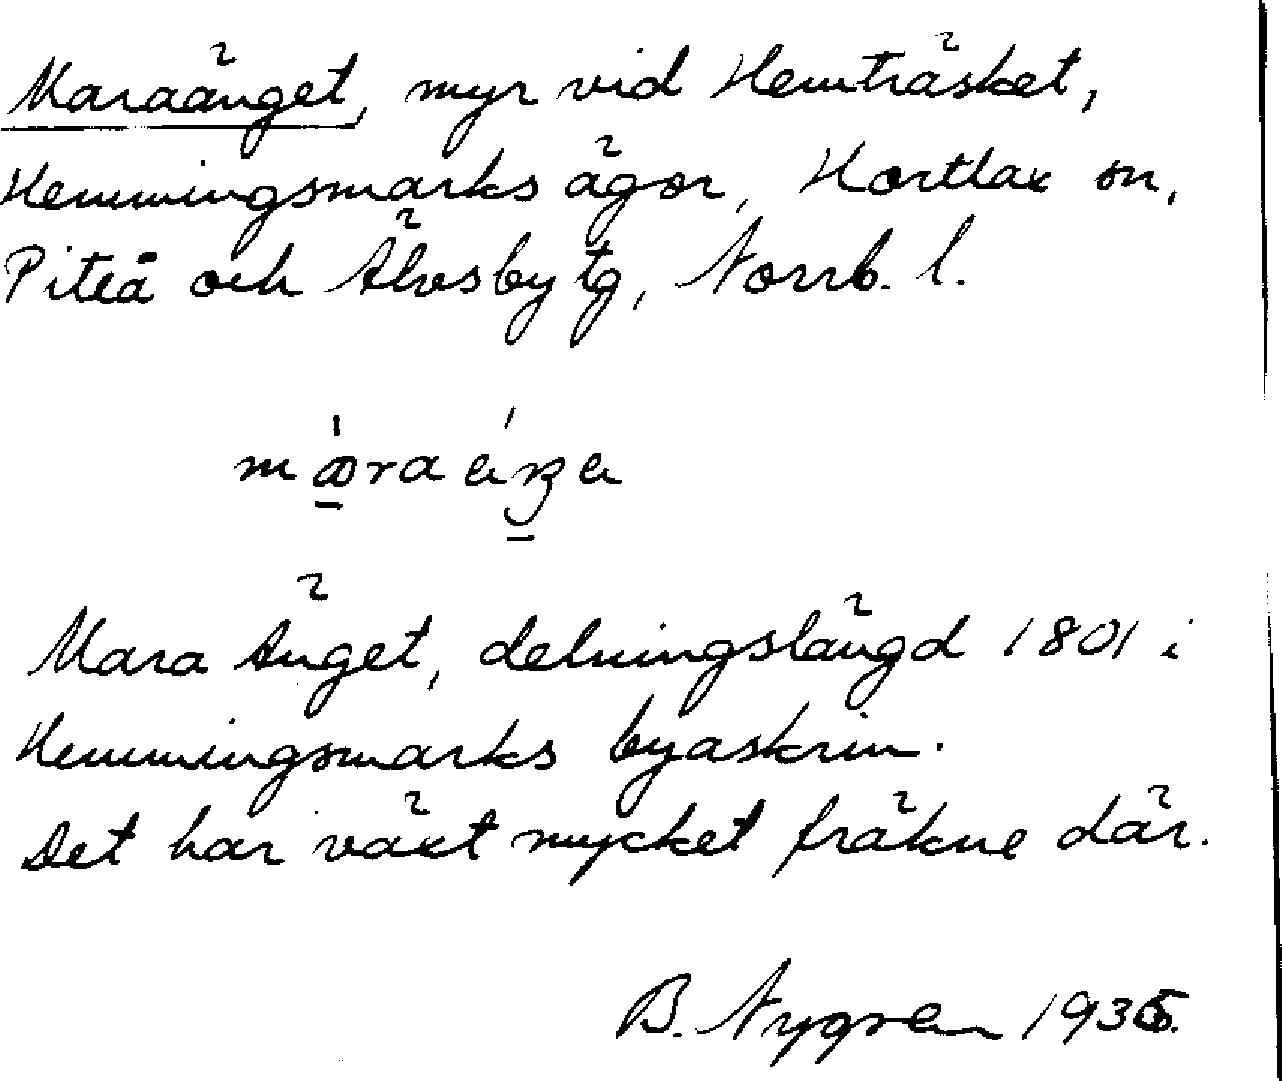 Maraänget, myr vid Hemträsket,
Hemmingsmarks ägor, Hortlax sn,
Piteå och Älvsby tg, Norrb. l.
Mara Änget, delningslängd 1801 i
Hemmingsmarks byaskrin.
Det har växt mycket fräkne där.
B. Nygren 1935.